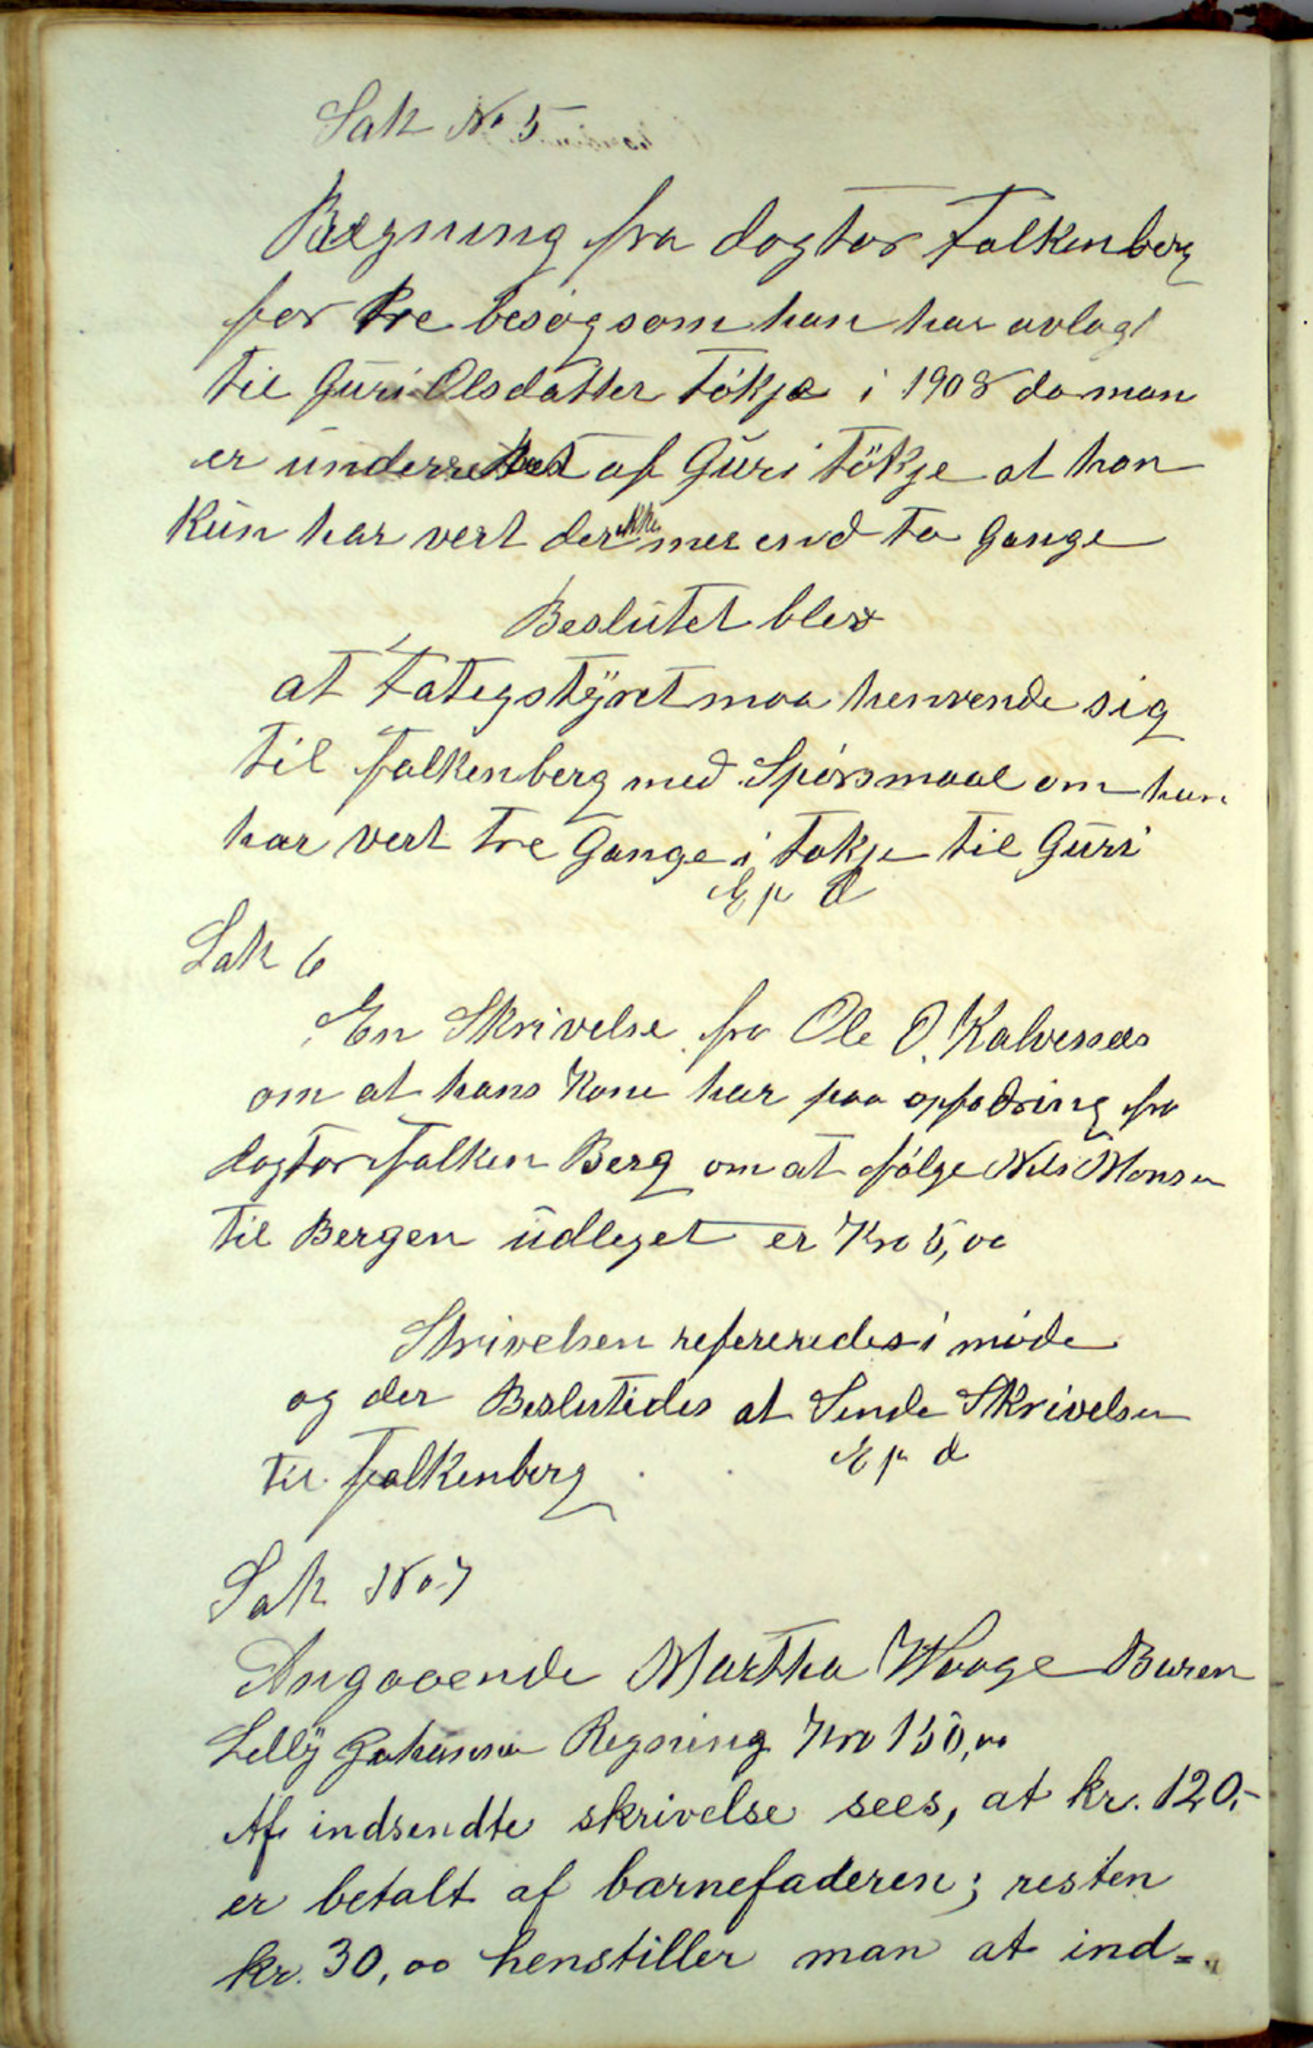 Sak No 5
Regning fra dogtor Falkenberg
for tre besøg som han har avlagt
til Guri Olsdatter Tökje i 1908 da man
er underrettet af Guri Tökje at han
Kun har vert der ikke mer end to Gange
Beslutet blev
at Fatigstyret maa henvende sig
til Falkenberg med Spörsmaal om han
har vert tre Gange i Tökje til Guri
E p d
Sak 6
En Skrivelse fra Ole O. Kalvenæs
om at hans Kone har paa opfodring fra
dogtor Falken Berg om at fölge Nils Monsen
til Bergen udleget er Kro 5,00
Skrivelsen refereredes i möde
og der Beslutides at Sende Skrivelsen
til Falkenberg
E p d
Sak No 7
Angaaende Martha Waage Buren
Lelly Johanna Regning Kro 150,00
Af indsendte skrivelse sees, at kr. 120,-
er betalt af barnefaderen; resten
kr. 30,00 henstiller man at ind=